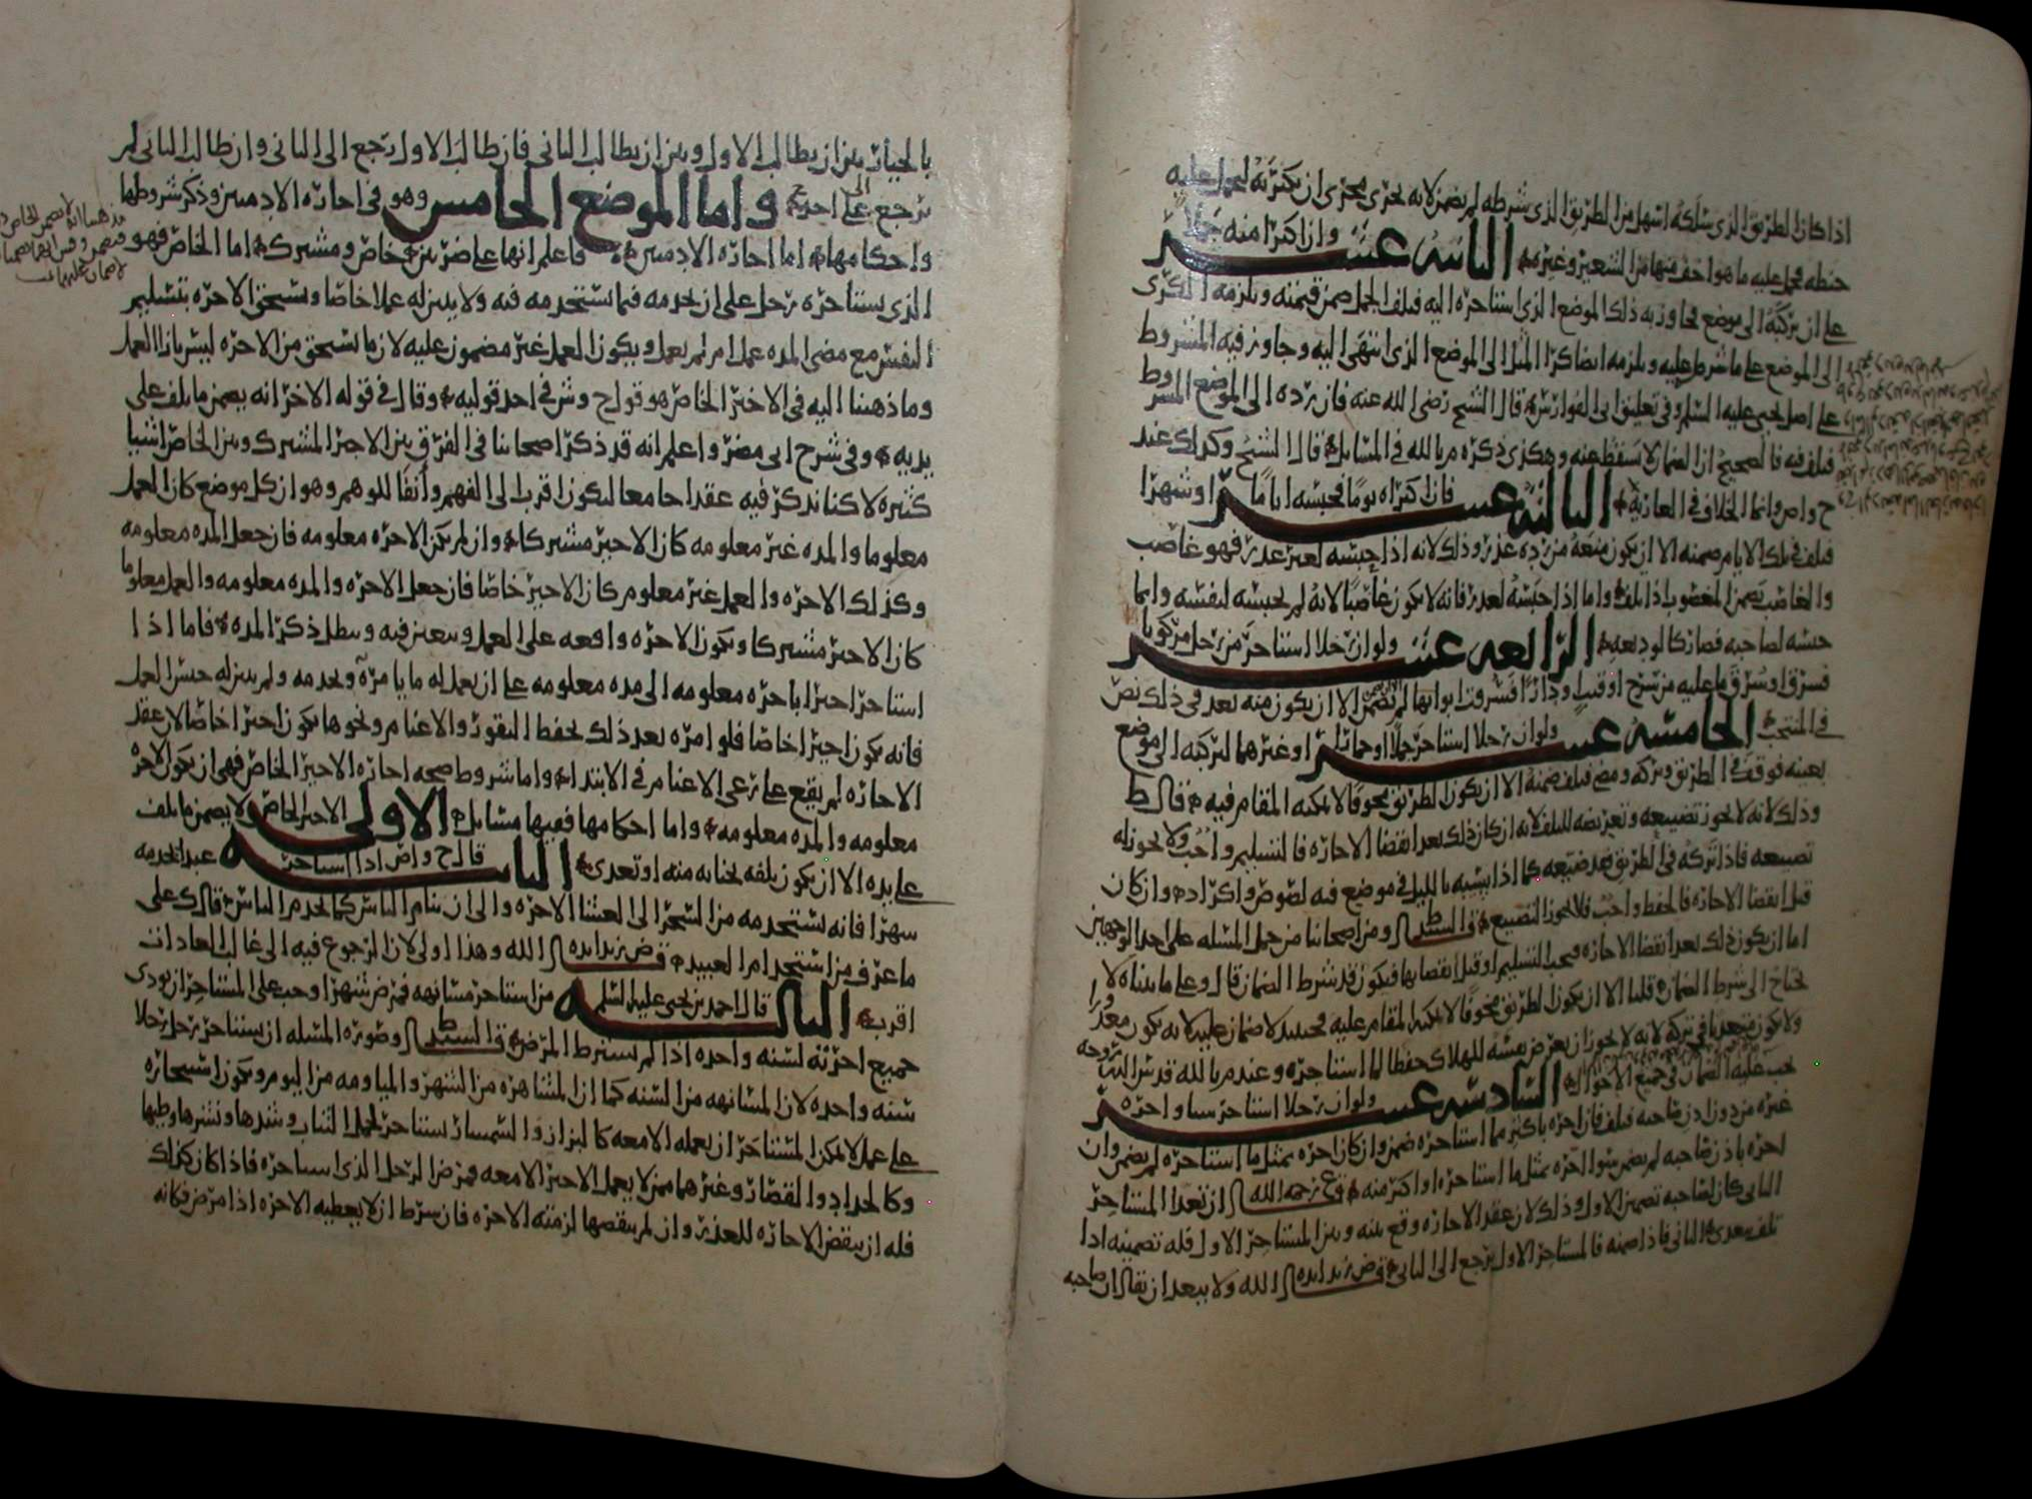 اذا كان الطريق الذي سلكه اسهل من الطريق الذي شرطه لم يضمن لانه يجري مجرى ان يكتريه ليحمل عليه
حنطه فحمل عليه ما هو اخف منها من الشعير وغيره الثانيه عشر وان اكترا منه جملا
على ان يركبه الى موضع فجاوز به ذلك الموضع الذي استاجره اليه فتلف الجمل ضمن قيمته ويلزمه الكرى
الى الموضع على ما شرط عليه ويلزمه ايضا كرا المثل الى الموضع الذي انتهى اليه وجاوز فيه المشروط
على اصل يحيى عليه السلم وفي تعليق ابي الفوارس قال الشيخ رضي الله عنه فان رده الى الموضع المشروط
فتلف فيه فالصحيح ان الضمان لا يسقط عنه وهكذى ذكره م بالله في المسايل قال الشيخ وكذلك عند
ح وص وانما الخلاف في العاريه الثالثه عشر فان اكتراه يوما فحبسه اياما او شهرا
فتلف في تلك الايام ضمنه الا ان يكون منعه من رده عذر وذلك لانه اذا حبسه لغير عذر فهو غاصب
والغاصب يضمن المغصوب اذا تلف واما اذا حبسه لعذر فانه لا يكون غاصبا لانه لم يحبسه لنفسه وانما
حبسه لصاحبه فصار كالوديعه الرابعه عشر ولو ان رجلا استاجر من رجل مركوبا
فسرق او سرق ما عليه من سرج او قتب او دارا فسرقت ابوابها لم يضمن الا ان يكون منه تعد في ذلك نص
في المنتخب الخامسه عشر ولو ان رجلا استاجر جملا او حمارا او غيرهما ليركبه الى موضع
بعينه فوقف في الطريق وتركه ومضى فتلف ضمنه الا ان يكون الطريق مخوفا لا يمكنه المقام فيه قال ط
وذلك لانه لا يجوز تضييعه وتعريضه للتلف لانه ان كان ذلك بعد انقضا الاجاره فالتسليم واجب ولا يجوز له
تضييعه فاذا تركه في الطريق فقد ضيعه كما اذا سيبه بالليل في موضع فيه لصوص واكراد وان كان
قبل انقضا الاجاره فالحفظ واجب فلا يجوز التضييع قال السيد ط ومن اصحابنا من حمل المسله على احد الوجهين
اما ان يكون ذلك بعد انقضا الاجاره فيجب التسليم او قبل انقضايها فيكون قد شرط الضمان قال وعلى ما بيناه لا
يحتاج الى شرط الضمان قلنا الا ان يكون الطريق مخوفا لا يمكنه المقام عليه فحينيذ لا ضمان عليه لانه يكون معذورا
ولا يكون متعديا في تركه لانه لا يجوز ان يعرض نفسه للهلاك حفظا لما استاجره وعند م بالله قدس الله روحه
يجب عليه الضمان في جميع الاحوال السادسه عشر ولو ان رجلا استاجر شيا واجره
غيره من دون اذن صاحبه فتلف فان اجره باكثر مما استاجره ضمن وان كان اجره بمثل ما استاجره لم يضمن وان
اجره باذن صاحبه لم يضمن سوا اجره بمثل ما استاجره او اكثر منه قال ع رحمه الله ان تعدا المستاجر
الثاني كان لصاحبه تضمين الاول وذلك لان عقد الاجاره وقع بينه وبين المستاجر الاول فله تضمينه اذا
تلف بتعدي الثاني فاذا ضمنه فالمستاجر الاول يرجع الى الثاني قال ض زيد ايده الله ولا يبعد ان يقال ان صاحبه
بالخيار بين ان يطالب الاول وبين ان يطالب الثاني فان طالب الاول رجع الى الثاني وان طالب الثاني لم
يرجع على احد واما الموضع الخامس وهو في اجاره الادميين وذكر شروطها
واحكامها اما اجاره الادميين فاعلم انها على ضربين خاص ومشترك اما الخاص فهو
الذي يستاجره رجل على ان يخدمه فيما يستخدمه فيه ولا يبين له عملا خاصا ويستحق الاجره بتسليم
النفس مع مضي المده عمل ام لم يعمل ويكون العمل غير مضمون عليه لان ما يستحق من الاجره ليس بازا العمل
وما ذهبنا اليه في الاجير الخاص هو قول ح وش في احد قوليه وقال في قوله الاخر انه يضمن ما تلف على
يديه وفي شرح ابي مضر واعلم انه قد ذكر اصحابنا في الفرق بين الاجير المشترك وبين الخاص اشيا
كثيره لاكنا نذكر فيه عقدا جامعا ليكون اقرب الى الفهم وانفا للوهم وهو ان كل موضع كان العمل
معلوما والمده غير معلومه كان الاجير مشتركا وان لم يكن الاجره معلومه فان جعل المده معلومه
وكذلك الاجره والعمل غير معلوم كان الاجير خاصا فان جعل الاجره والمده معلومه والعمل معلوما
كان الاجير مشتركا ويكون الاجره واقعه على العمل ويتعين فيه ويبطل ذكر المده فاما اذا
استاجر اجيرا باجره معلومه الى مده معلومه على ان يعمل له ما يامره ويخدمه ولم يبين له جنس العمل
فانه يكون اجيرا خاصا فلو امره بعد ذلك بحفظ النقود والاغنام ونحوها يكون اجيرا خاصا لان عقد
الاجاره لم يقع على رعي الاغنام في الابتدا واما شروط صحه اجاره الاجير الخاص فهي ان يكون الاجره
معلومه والمده معلومه واما احكامها ففيها مسايل الاولى الاجير الخاص لا يضمن ما تلف
على يده الا ان يكون تلفه لجنايه منه او تعدى الثانيه قال ح وص اذا استاجر عبدا لخدمه
شهرا فانه يستخدمه من السحر الى العشا الاخره والى ان ينام الناس كما يخدم الناس قال ك على
ما عرف من استخدام العبيد قال ض زيد ايده الله وهذا اولى لان الرجوع فيه الى غالب العادات
اقرب الثالثه قال احمد بن يحيى عليه السلم من استاجر مسانهه فمرض شهرا وجب على المستاجر ان يودي
جميع اجرته لسنه واحده اذا لم يشترط المرض قال السيد ط وصوره المسله ان يستاجر رجل رجلا
سنه واحده لان المسانهه من السنه كما ان المشاهره من الشهر والمياومه من اليوم ويكون استيجاره
على عمل لا يمكن المستاجر ان يعمله الا معه كالبزاز والسمسار يستاجر لحمل الثياب وشدها ونشرها وطيها
وكالحداد والقصار وغيرهما ممن لا يعمل الاجير الا معه فمرض الرجل الذي استاجره فاذا كان كذلك
فله ان ينقض الاجاره للعذر وان لم ينقضها لزمته الاجره فان شرط ان لا يعطيه الاجره اذا مرض فكانه